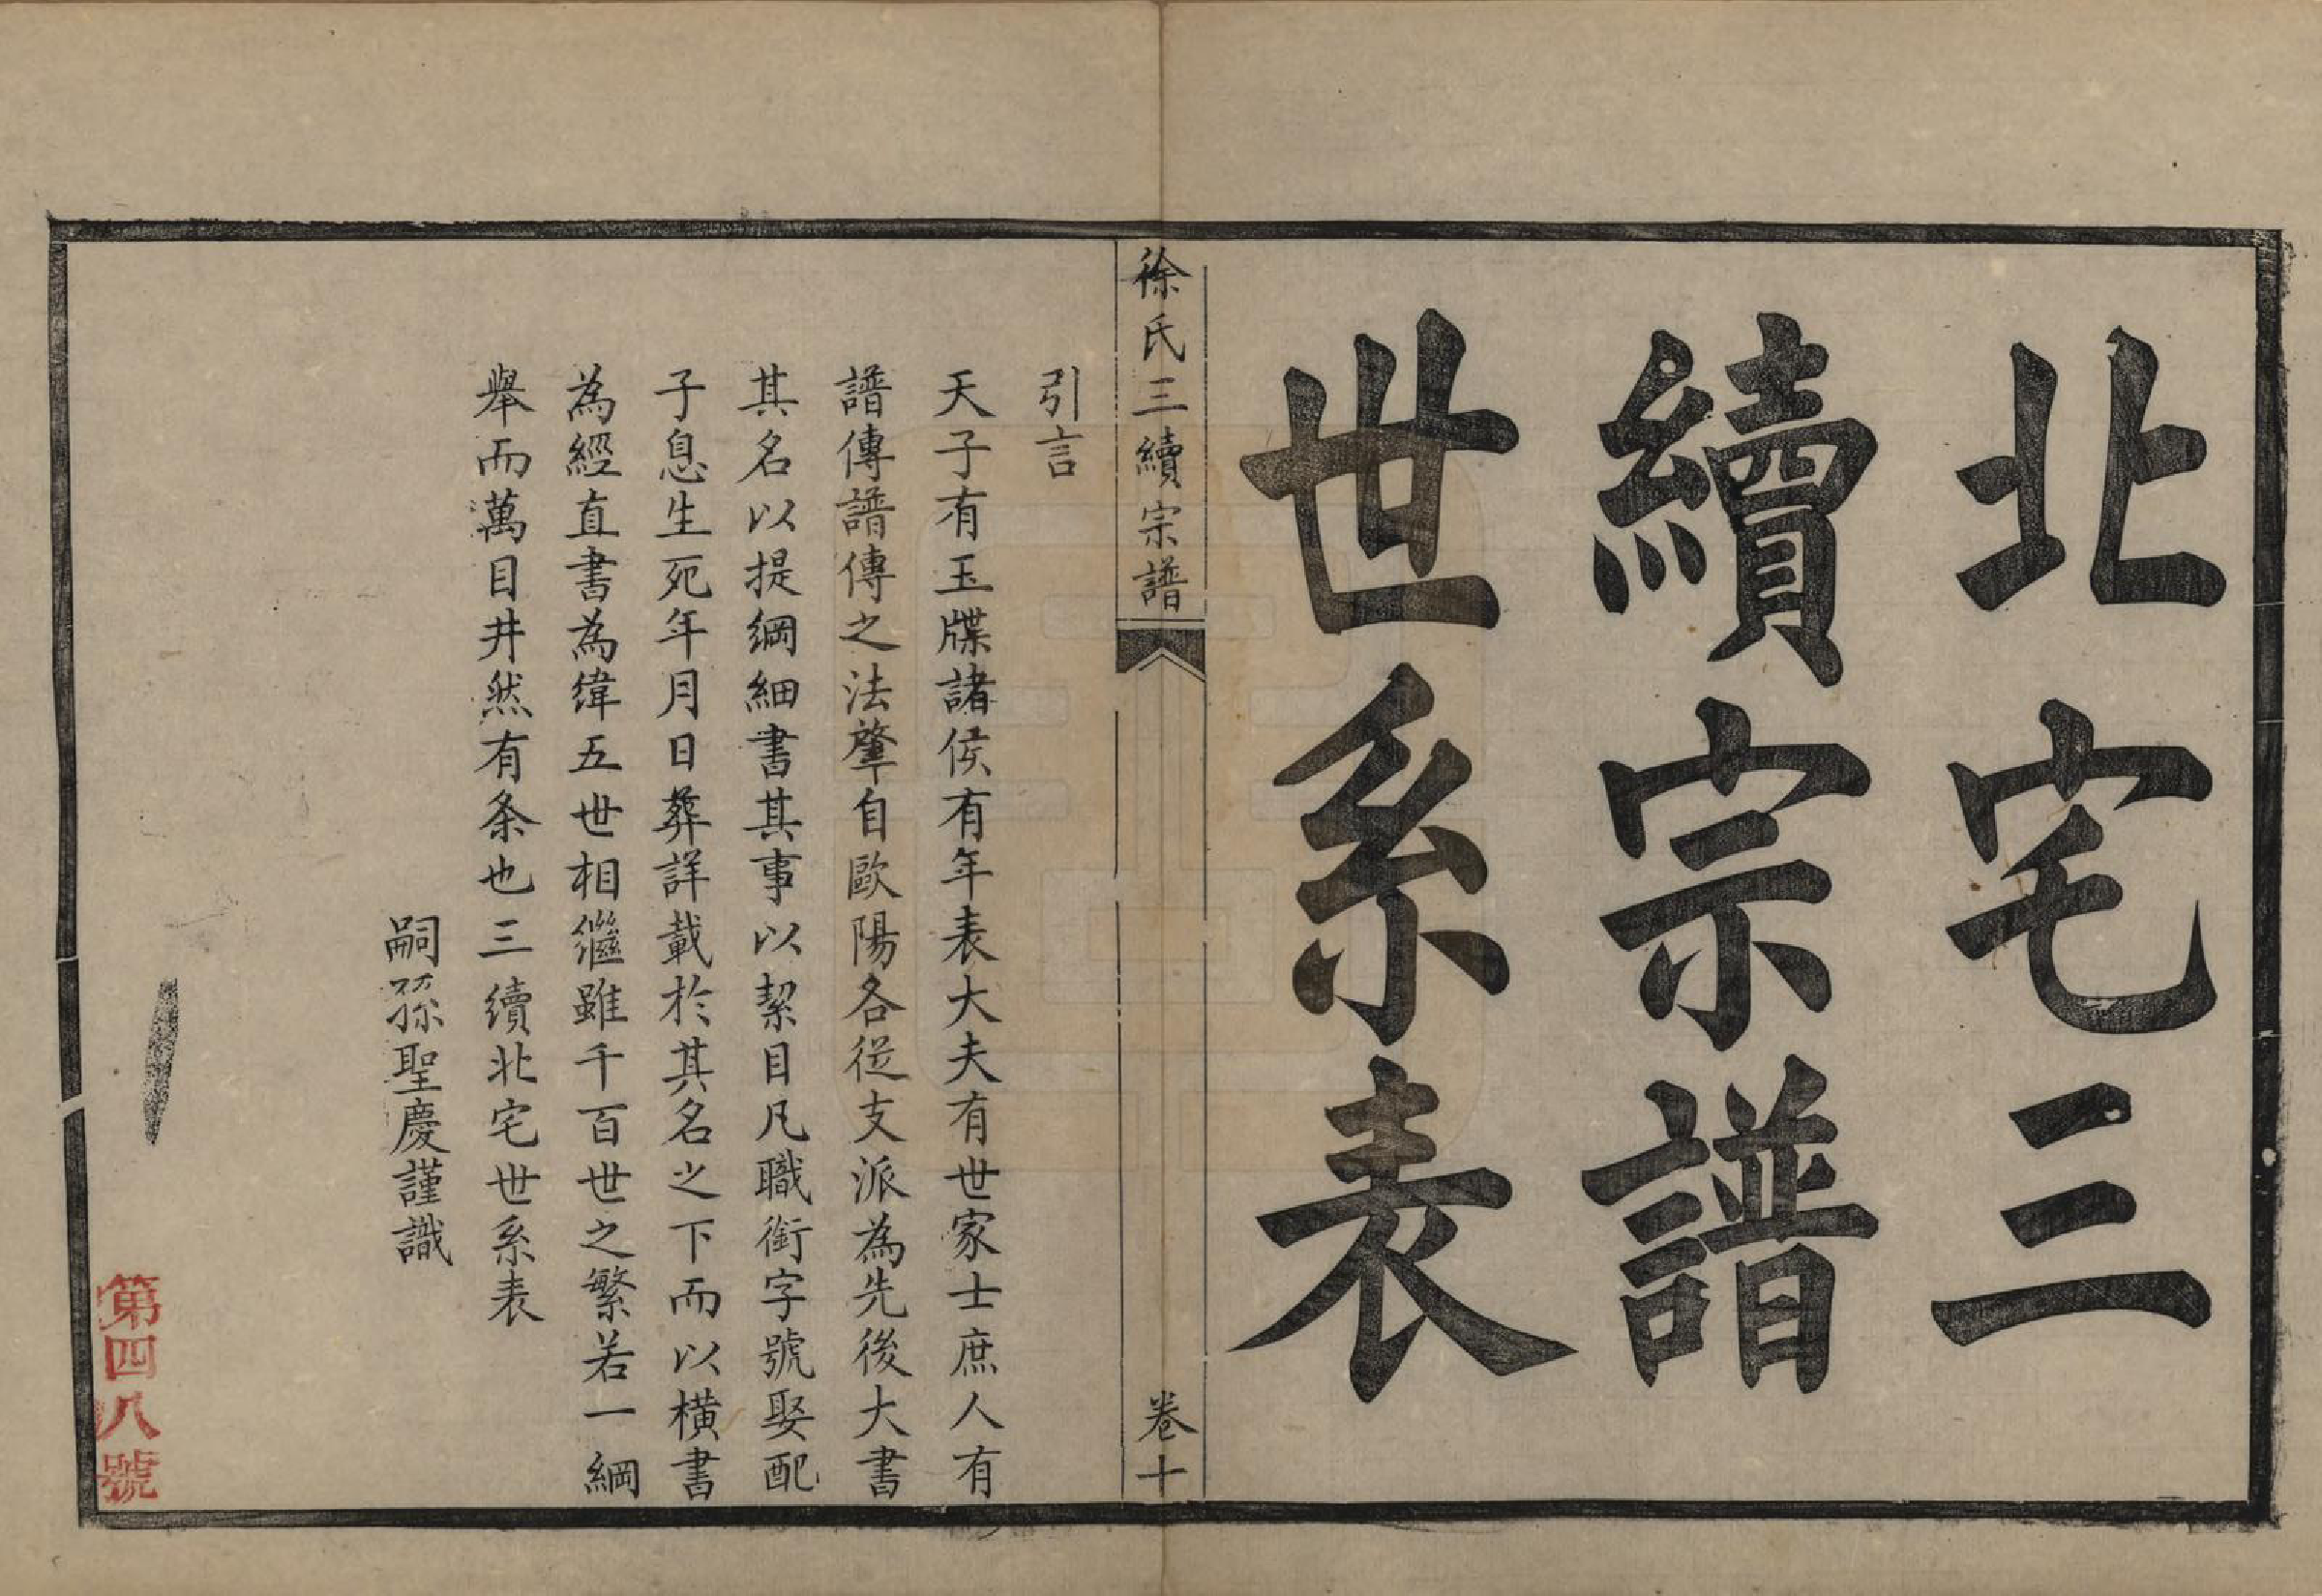 北宅三
續宗譜
世系表
徐氏三續宗譜
卷十
引言
天子有玉牒諸侯有年表大夫有世家士庶人有
譜傳譜傳之法肇自歐陽各從支派為先後大書
其名以提綱細書其事以挈目凡職銜字號娶配
子息生死年月日葬詳載於其名之下而以橫書
為經直書為緯五世相繼雖千百世之繁若一綱
舉而萬目井然有条也三續北宅世系表
嗣孫聖慶謹識
第四八號